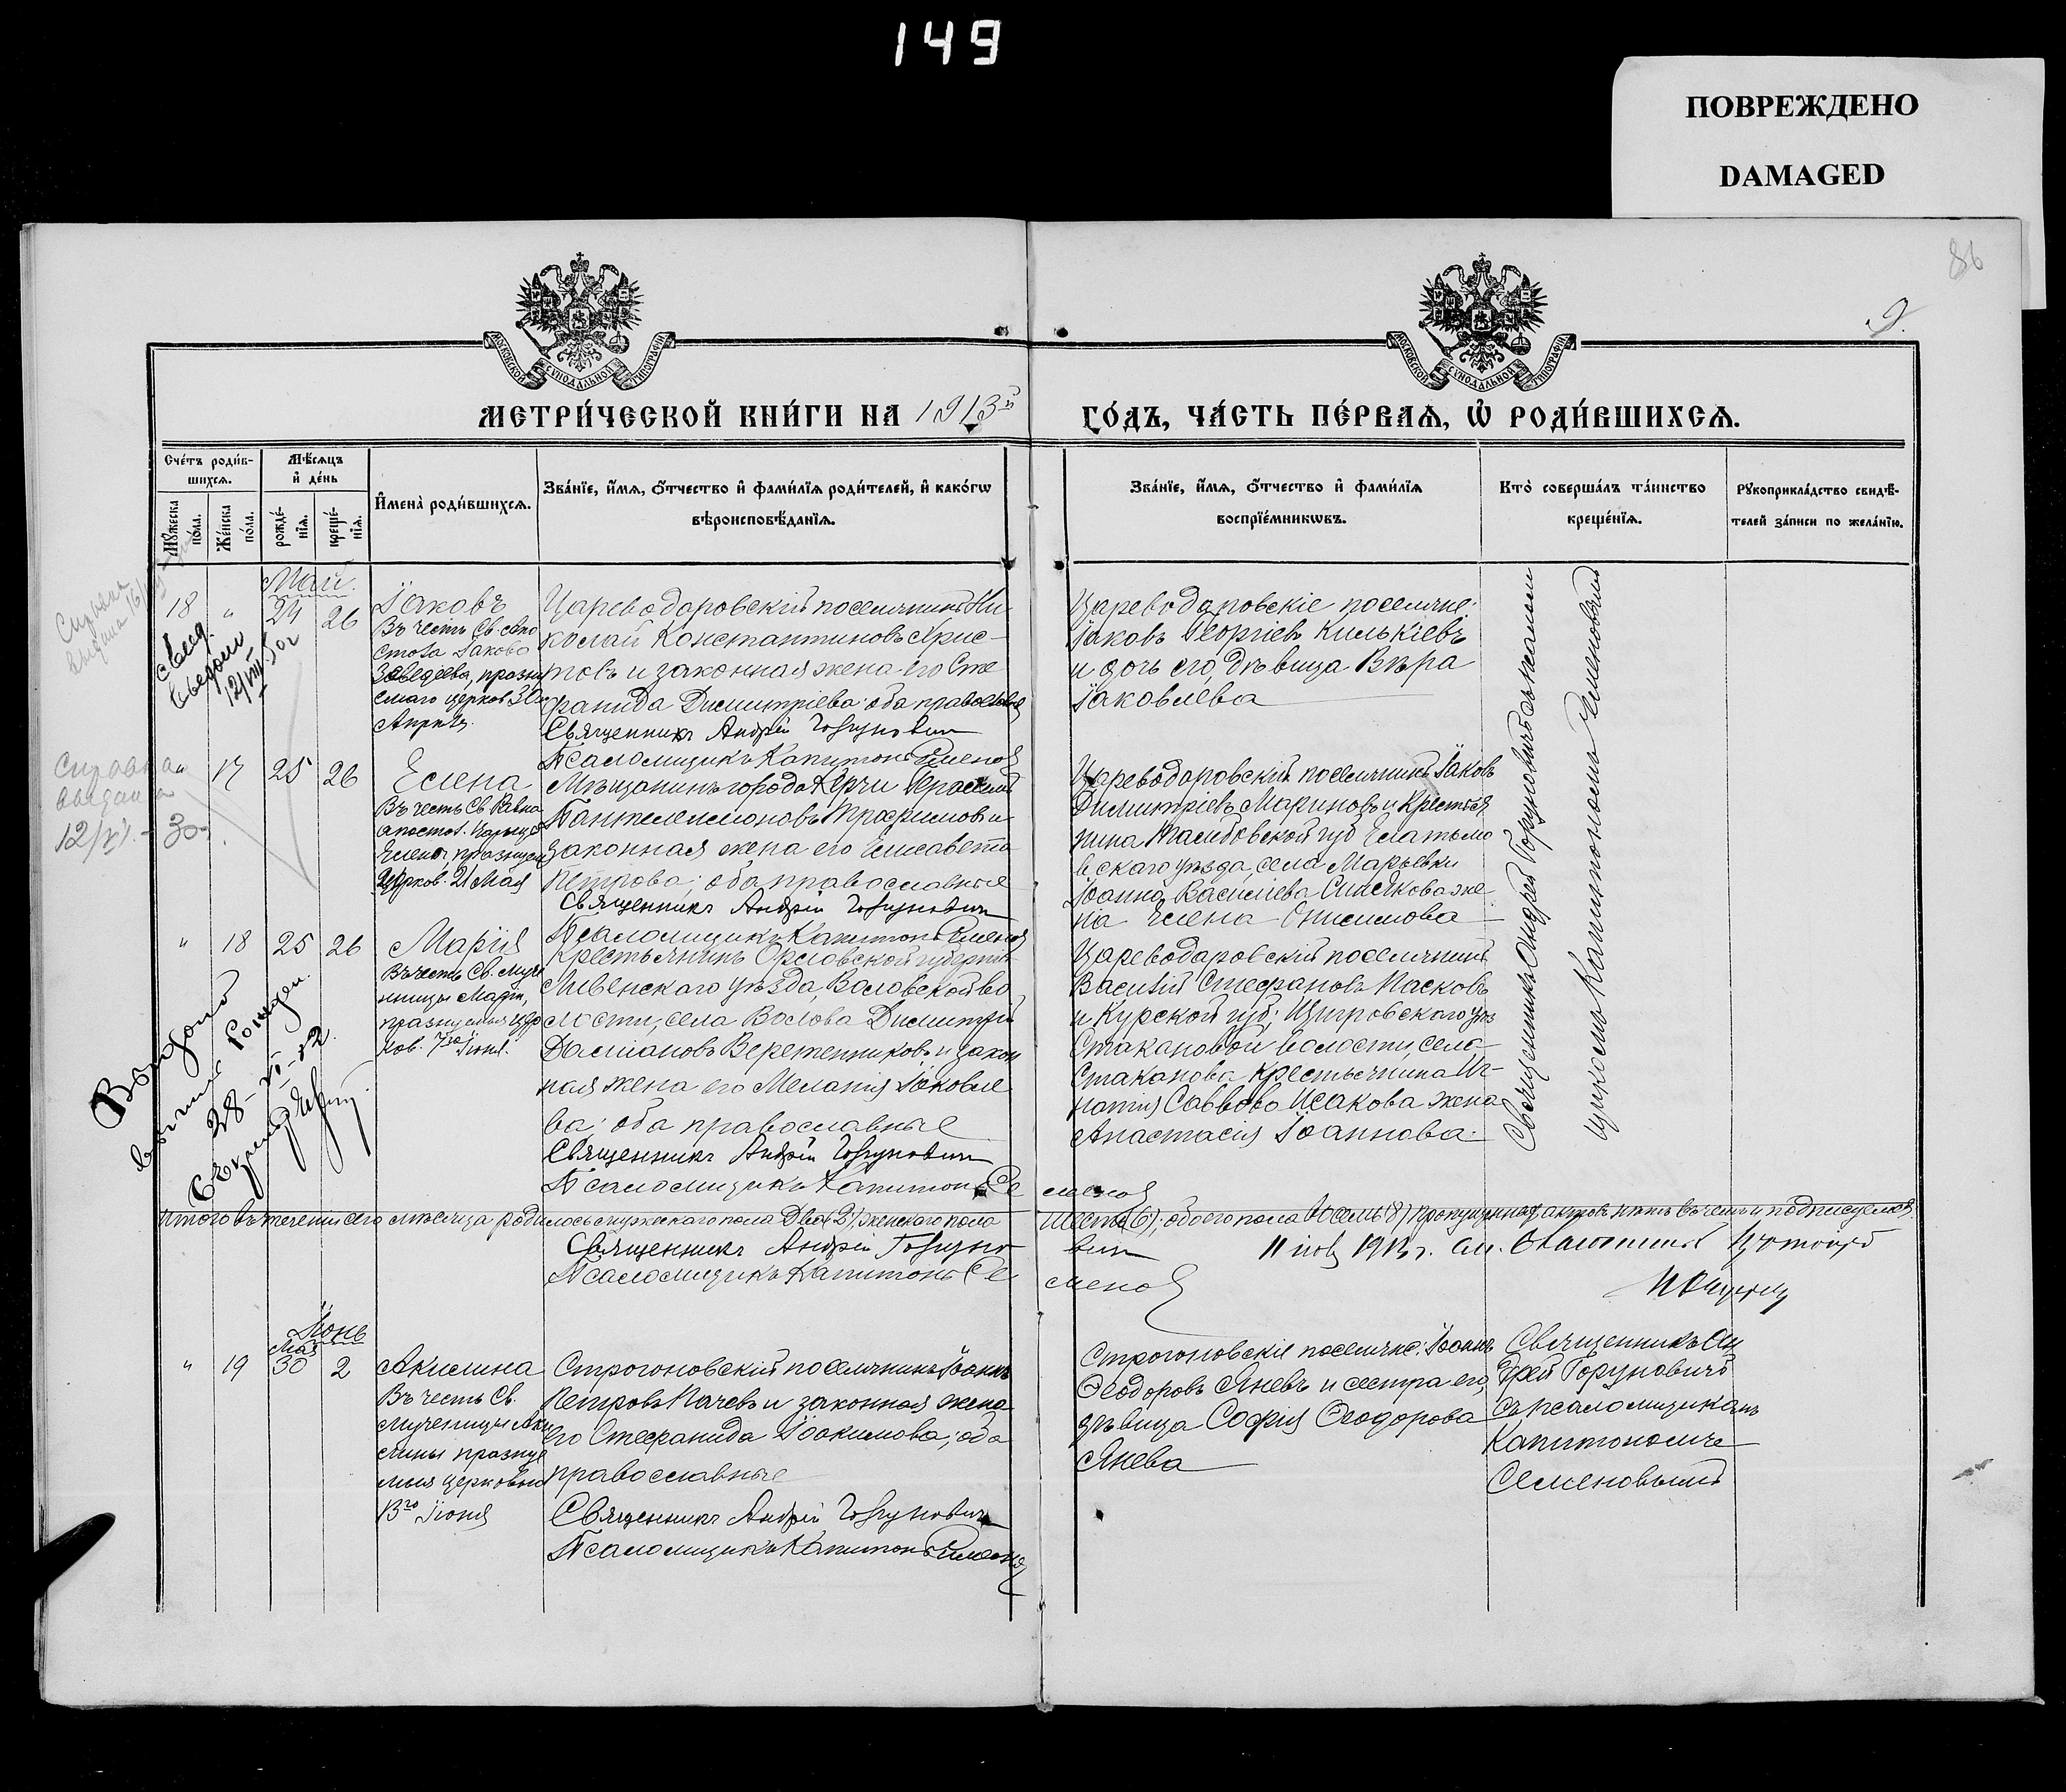 149
ПОВРЕЖДЕНО
DAMAGED
86
9.
МОСКОВСКОЙ СУНОДАЛЬНОЙ ТИПОГРАФІИ
МОСКОВСКОЙ СУНОДАЛЬНОЙ ТИПОГРАФІИ
МЕТРИ́ЧЕСКОЙ КНИ́ГИ НА 1913й ГО́ДЪ, ЧА́СТЬ ПЕ́РВАѦ, Ѡ҆ РОДИ́ВШИХСѦ.
Сче́тъ роди́в-
шихсѧ.
Мѣ́сѧцъ
и҆ де́нь
Мꙋ́жеска
по́ла.
Же́нска
по́ла.
рожде́-
нїѧ.
креще́-
нїѧ.
И҆мена̀ роди́вшихсѧ.
Зва́нїе, и҆́мѧ, ѻ҆́тчество и҆ фами́лїѧ роди́телей, и҆ како́гѡ
вѣроисповѣ́данїѧ.
Зва́нїе, и҆́мѧ, ѻ҆́тчество и҆ фами́лїѧ
воспрїе́мникѡвъ.
Кто̀ соверша́лъ та́инство
креще́нїѧ.
Рꙋкоприкла́дство свидѣ́-
телей за́писи по жела́нїю.
Май.
18 " 24 26
Іаковъ
Въ честь Св. апо
стола Іакова
Заведеева, празну
емаго церков 30го
Апрѣля.
Цареводаровскій поселянинъ Ни-
колай Константиновъ Хрис-
товъ и законная жена его Сте
фанида Димитріева; оба православные
Священникъ Андрей Горунович
Псаломщикъ Капитонъ Семенов
Цареводаровскіе поселяне:
Іаковъ Георгіевъ Килькіевъ
и дочь его, дѣвица Вѣра
Іаковлева
Справка
выдана
12/XI - 30г.
" 17 25 26
Елена
Въ честь Св. Равно
апостол. Царицы
Елены, празнуем
церков. 21 Мая
Мѣщанинъ города Керчи Герасимъ
Пантелеимоновъ Трофимовъ и
законная жена его Елисавета
Петрова; оба православные
Священникъ Андрей Горунович
Псаломщикъ Капитонъ Семенов
Цареводаровскій поселянинъ Іаковъ
Димитріевъ Мариновъ и крестья
нина Тамбовской губ Елатьмо
вскаго уѣзда, села Марьевки
Іоанна Василіева Синякова же
на Елена Онисимова
" 18 25 26
Марія
Въ честь Св. муче
ницы Маріи,
празнуемыя цер
ков. 7го Іюня.
Крестьянинъ Орловской губерніи
Ливенскаго уѣзда, Воловской во
лости, села Волова Димитрій
Даміановъ Веретенниковъ и закон
ная жена его Меланія Іаковле
ва; оба православные
Священникъ Андрей Горунович
Псаломщикъ Капитонъ Се менов
Цареводаровскій поселянинъ
Василій Стефановъ Пасковъ
и Курской губ; Щигровскаго уѣз
Стакановой волости, села
Стаканова крестьянина Иг-
натія Саввова Исакова жена
Анастасія Іоаннова
Священникъ Андрей Горуновичъ съ псалом
щикомъ Капитономъ Семеновымъ
28-VI-52
Итого въ теченіи сего мѣсяца родилось мужескаго пола Два (2), женскаго пола Шесть (6); обоего пола Восемь (8) пропущенныхъ актовъ нѣтъ въ чемъ и подписуемся.
Священникъ Андрей Горуно вич
Псаломщикъ Капитонъ Се менов
Іюнь
Мая
" 19 30 2
Акилина
Въ честь Св.
мученицы Аки
лины празнуе
мыя церковью
13го Іюня
Строгоновскій поселянинъ Іоаннъ
Петровъ Пачевъ и законная жена
его Стефанида Іоакимова; оба
православные
Священникъ Андрей Горунович
Псаломщикъ Капитонъ Семенов
Строгоновскіе поселяне: Іоаннъ
Ѳеодоровъ Яневъ и сестра его,
дѣвица Софія Ѳеодорова
Янева
Священникъ Ан
дрей Горуновичъ
съ псаломщикомъ
Капитономъ
Семеновымъ